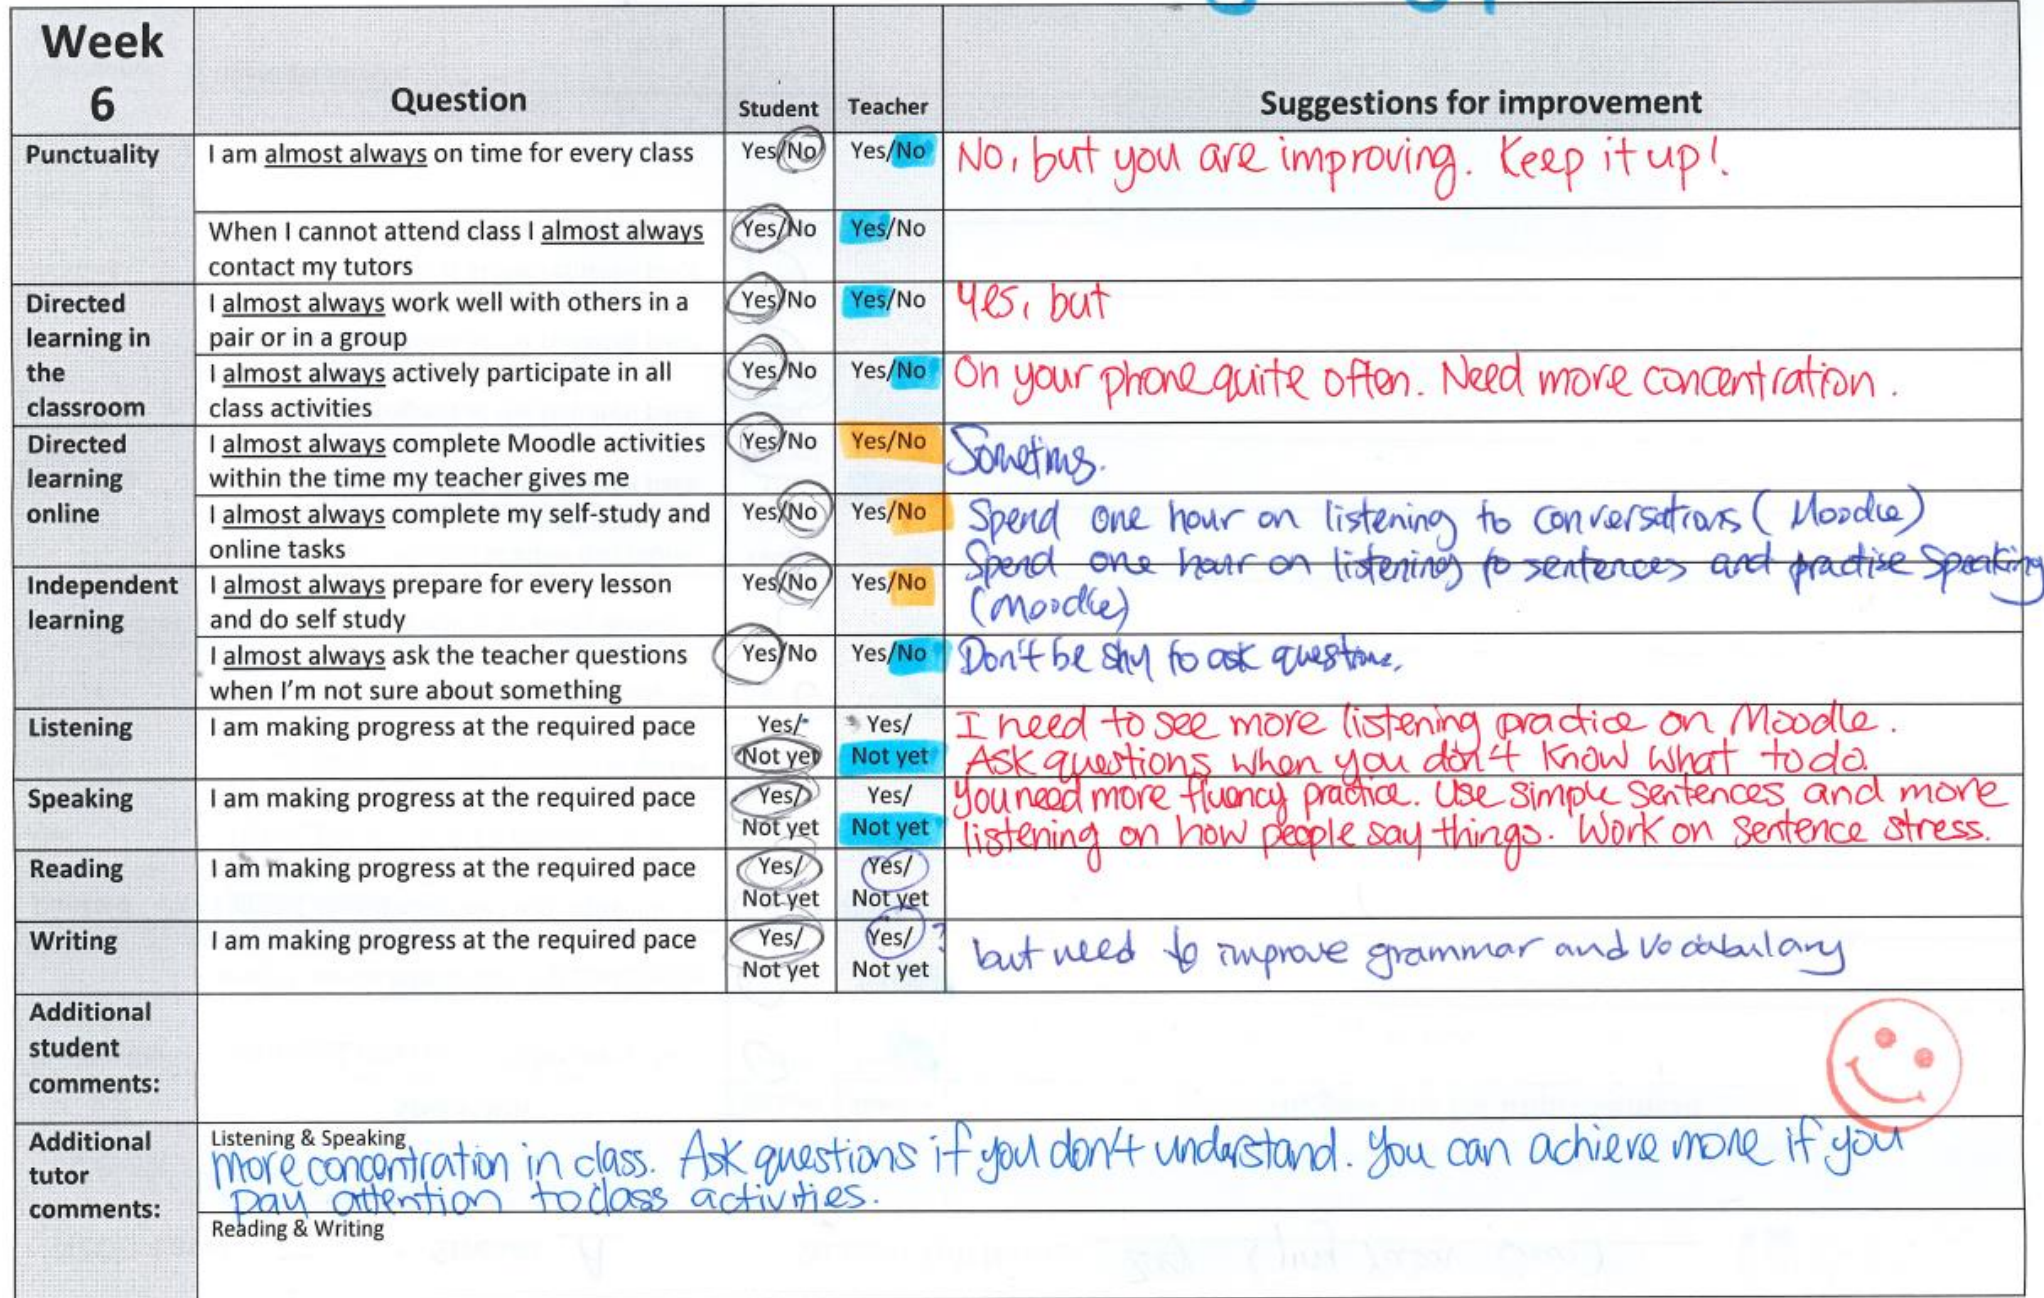 Week
6
Question
Student
Teacher
Suggestions for improvement
Punctuality
I am almost always on time for every class
Yes/No
Yes/No
No, but you are improving. Keep it up!
When I cannot attend class I almost always
contact my tutors
Yes/No
Yes/No
Directed
learning in
the
classroom
I almost always work well with others in a
pair or in a group
Yes/No
Yes/No
Yes, but
I almost always actively participate in all
class activities
Yes/No
Yes/No
On your phone quite often. Need more concentration.
Directed
learning
online
I almost always complete Moodle activities
within the time my teacher gives me
Yes/No
Yes/No
Sometims.
I almost always complete my self-study and
online tasks
Yes/No
Yes/No
Spend one hour on listening to conversations (Moodle)
Spend one hour on listening to sentences and practise speaking
(Moodle)
Independent
learning
I almost always prepare for every lesson
and do self study
Yes/No
Yes/No
I almost always ask the teacher questions
when I'm not sure about something
Yes/No
Yes/No
Don't be shy to ask questions.
Listening
I am making progress at the required pace
Yes/
Not yet
Yes/
Not yet
I need to see more listening practice on Moodle.
Ask questions when you don't know what to do.
Speaking
I am making progress at the required pace
Yes/
Not yet
Yes/
Not yet
You need more fluency practice. Use simple sentences and more
listening on how people say things. Work on sentence stress.
Reading
I am making progress at the required pace
Yes/
Not yet
Yes/
Not yet
Writing
I am making progress at the required pace
Yes/
Not yet
Yes/ ?
Not yet
but need to improve grammar and vocabulary
Additional
student
comments:
Additional
tutor
comments:
Listening & Speaking
more concentration in class. Ask questions if you don't understand. You can achieve more if you
pay attention to class activities.
Reading & Writing